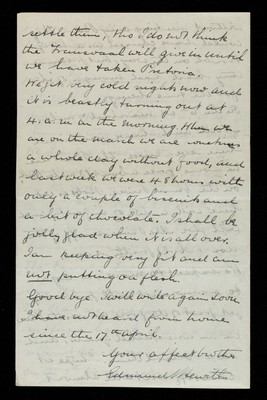 settle them, tho' I do not think
the Transvaal will give in until
we have taken Pretoria.
We get very cold nights now and
it is beastly turning out at
4. a.m in the morning. When we
are on the march we are sometimes
a whole day without food, and
last week we were 48 hours with
only a couple of biscuits and
a bit of chocolate. I shall be
jolly glad when it is all over.
I am keeping very fit and am
not putting on flesh.
Good bye I will write again soon
I have not heard from home
since the 17th April.
Your affect brother